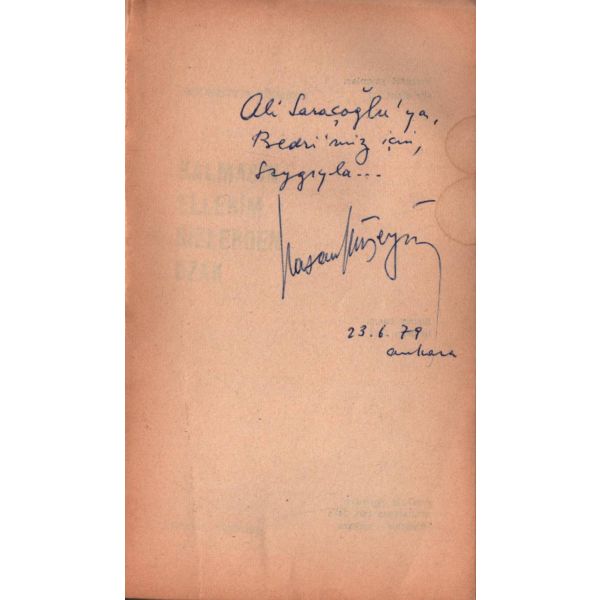 Ali Saraçoğlu'ya,
Bedri'miz için,
Saygıyla...
Hasan Hüseyin
23.6.79
ankara